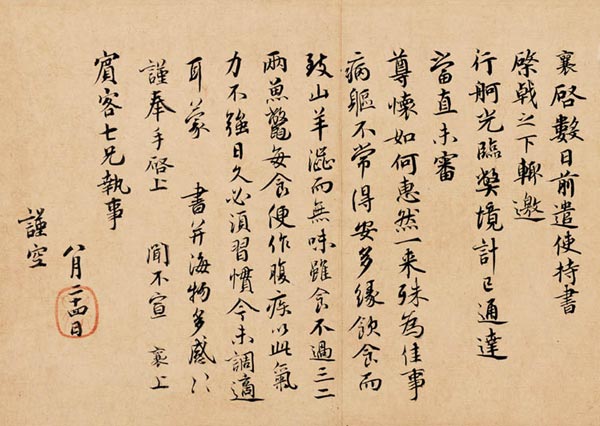 襄啓數日前遣使持書
棨戟之下輙邀
行舸光臨弊境計已通達
當直未審
尊懷如何惠然一来殊為佳事
病軀不常得安多緣飲食而
致山羊澀而無味雖食不過三二
兩魚鱉每食便作腹疾以此氣
力不強日久必須習慣今未調適
耳蒙 書并海物多感〻
謹奉手啓上 聞不宣 襄上
賓客七兄執事
八月二十四日
謹空